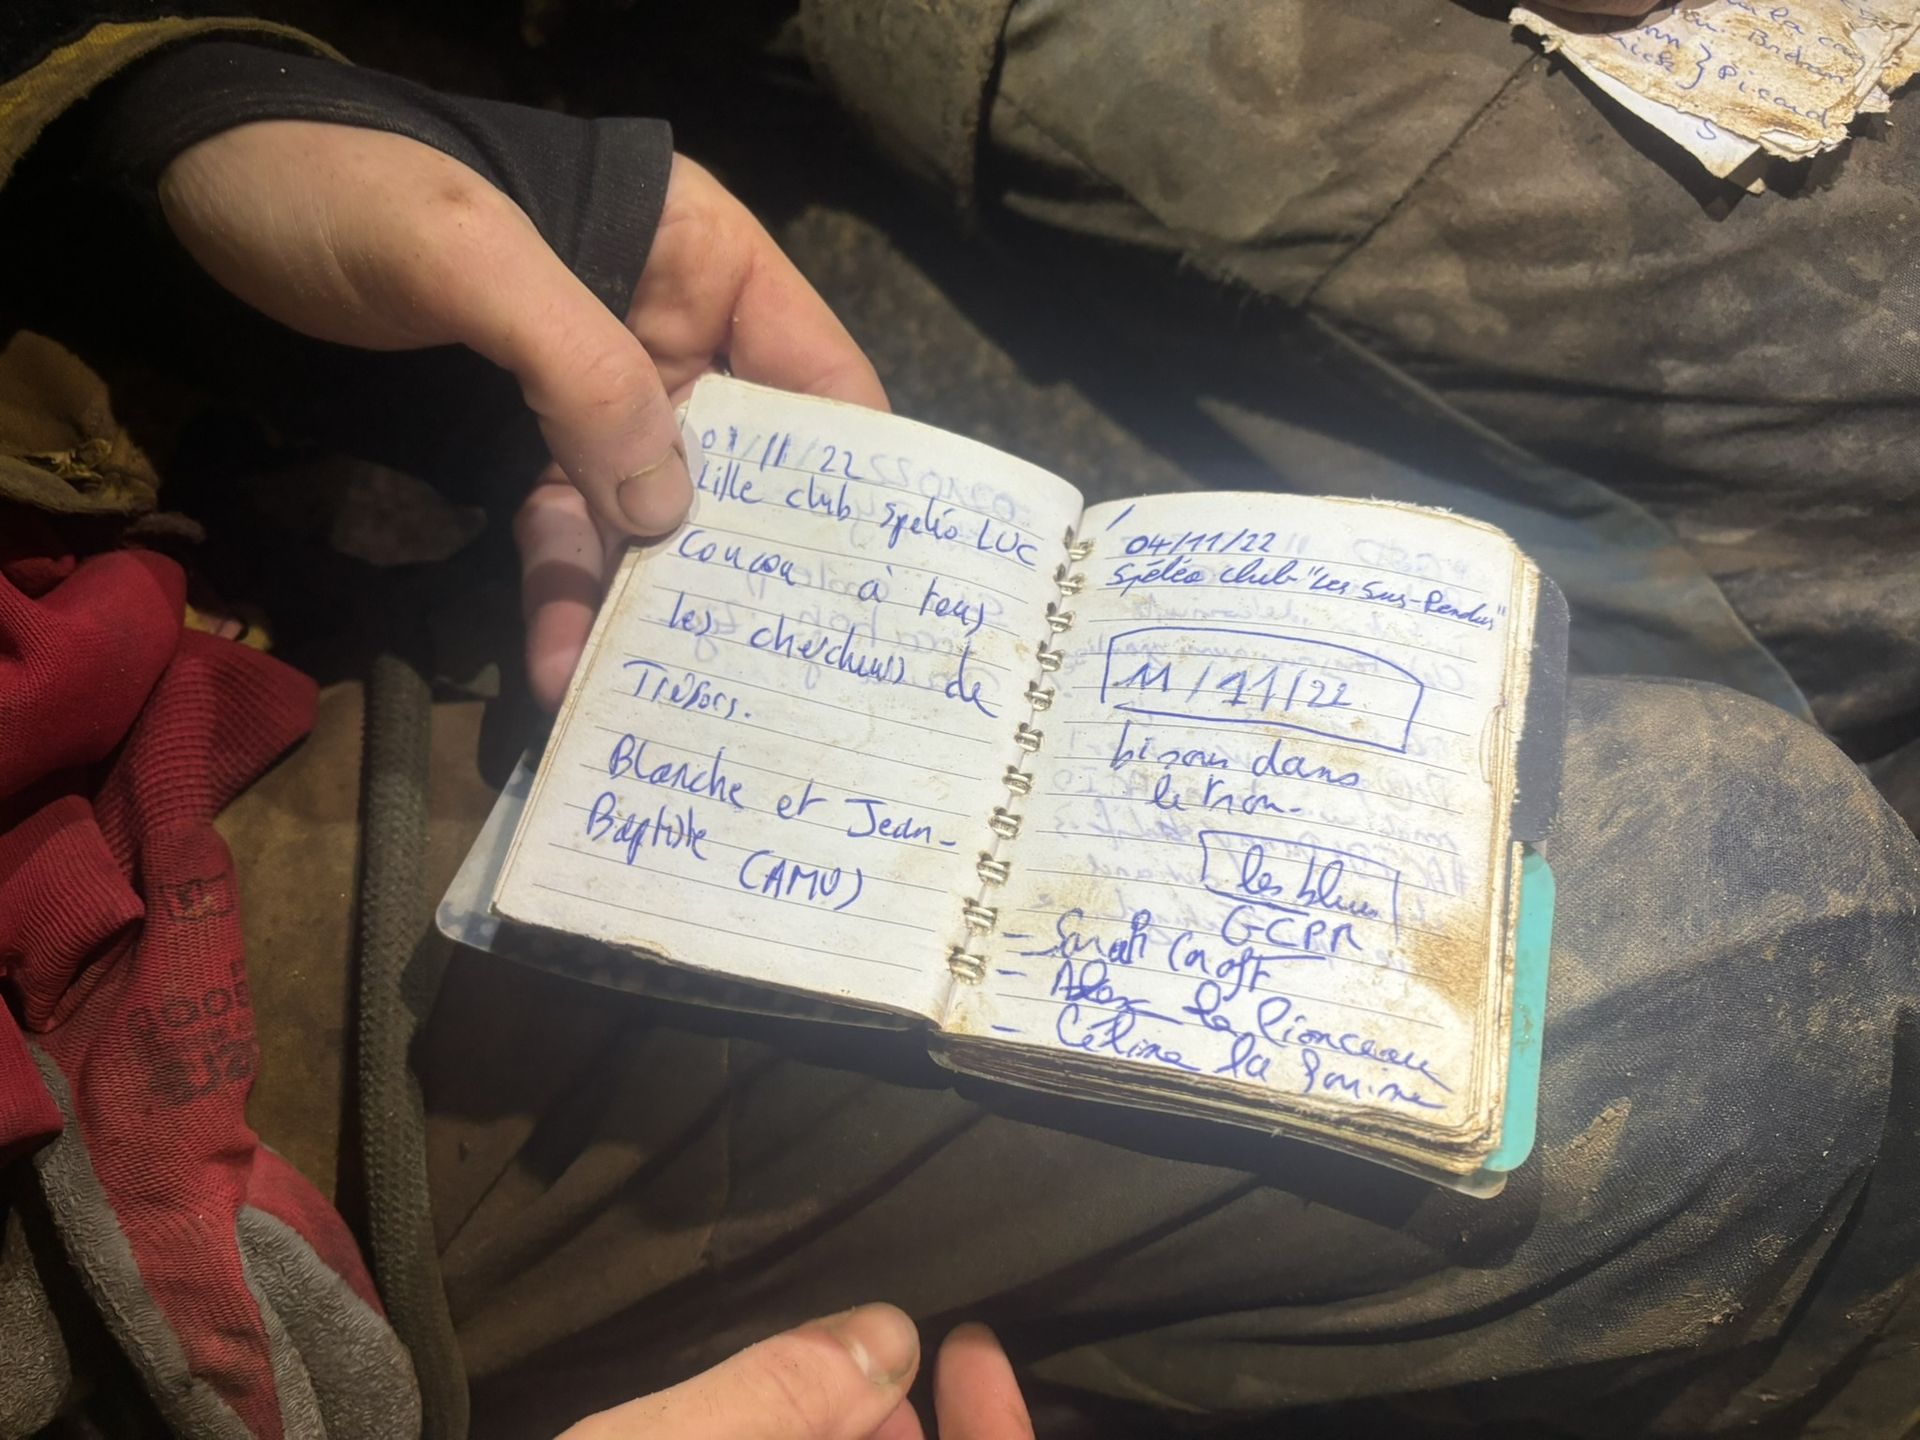 01/11/22
Lille club spéléo LUC
Coucou à tous
les chercheurs de
Trésors.
Blanche et Jean-
Baptiste (AMU)
04/11/22
spéléo club "Les Sus-Pendus"
11/11/22
bisous dans
le tron.
les blues
GCPR
- Sarah Croft
- Alex le lionceau
- Céline la fouine
la
Bidran
} Picard